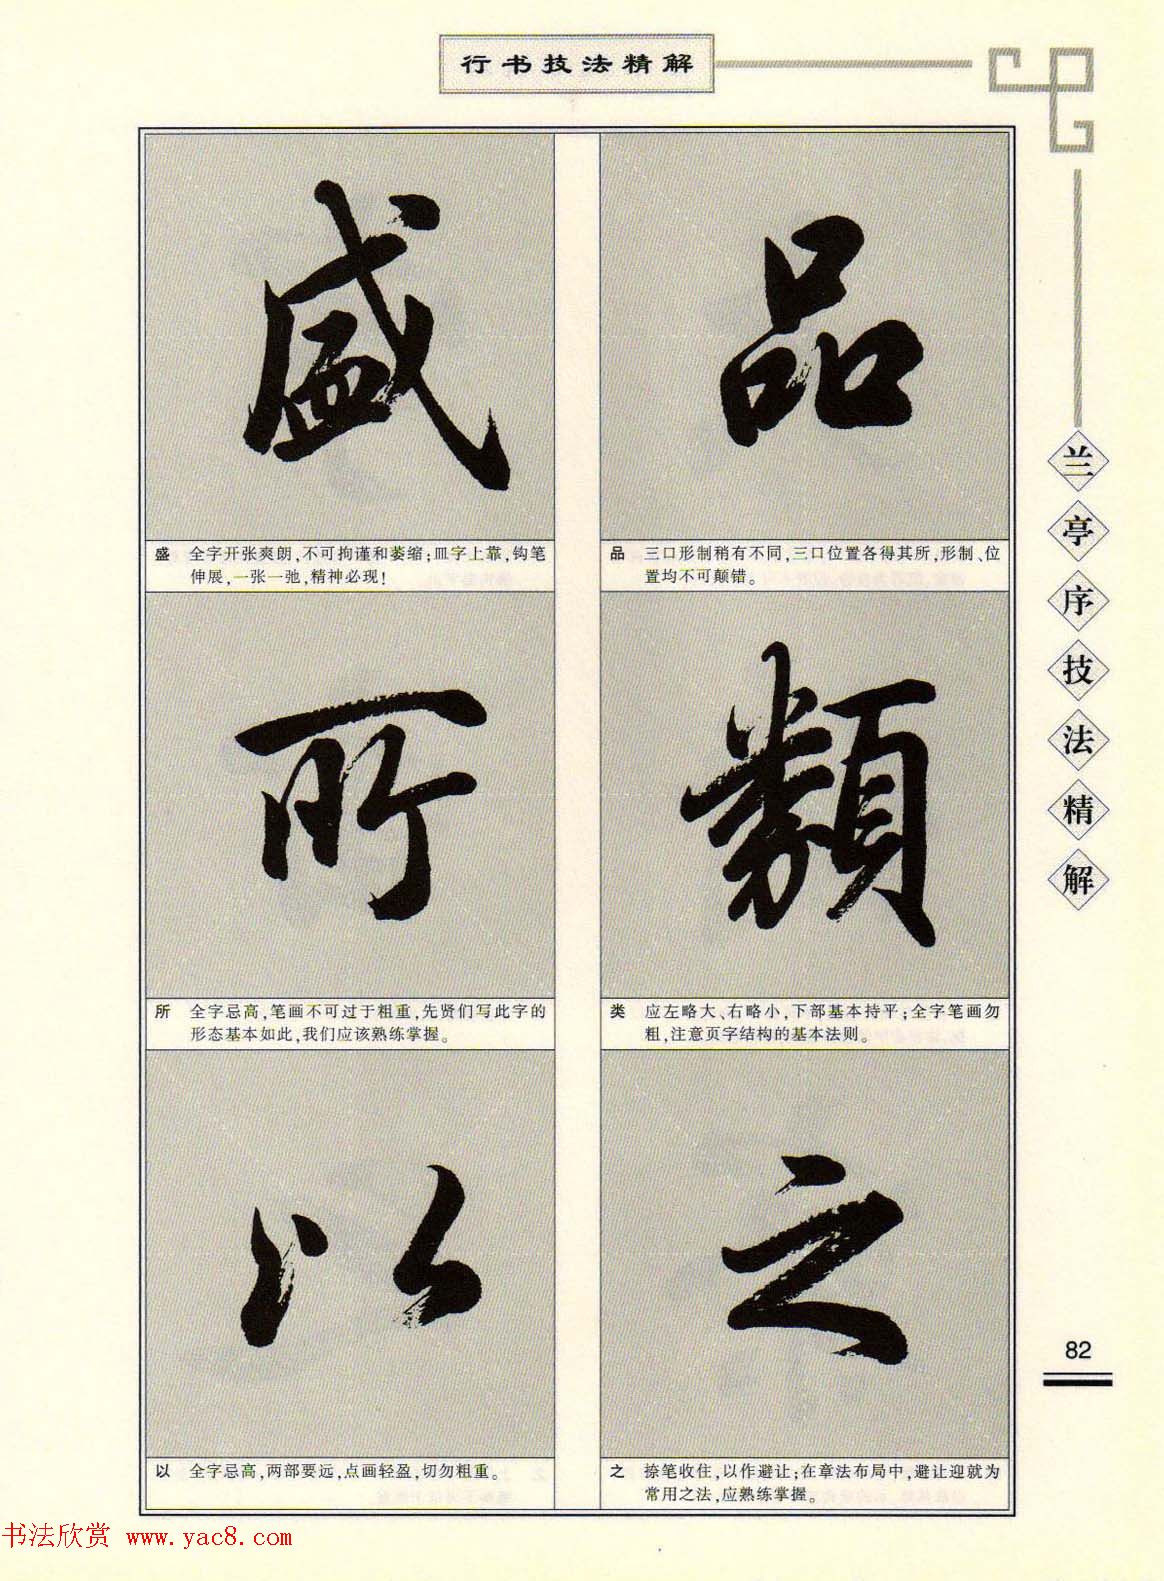 行书技法精解
品
盛
品 三口形制稍有不同,三口位置各得其所,形制、位
置均不可颠错。
盛 全字开张爽朗,不可拘谨和萎缩;皿字上靠,钩笔
伸展,一张一弛,精神必现!
類
所
类 应左略大、右略小,下部基本持平;全字笔画勿
粗,注意页字结构的基本法则。
所 全字忌高,笔画不可过于粗重,先贤们写此字的
形态基本如此,我们应该熟练掌握。
之
以
之 捺笔收住,以作避让;在章法布局中,避让迎就为
常用之法,应熟练掌握。
以 全字忌高,两部要远,点画轻盈,切勿粗重。
兰亭序技法精解
82
书法欣赏 www.yac8.com